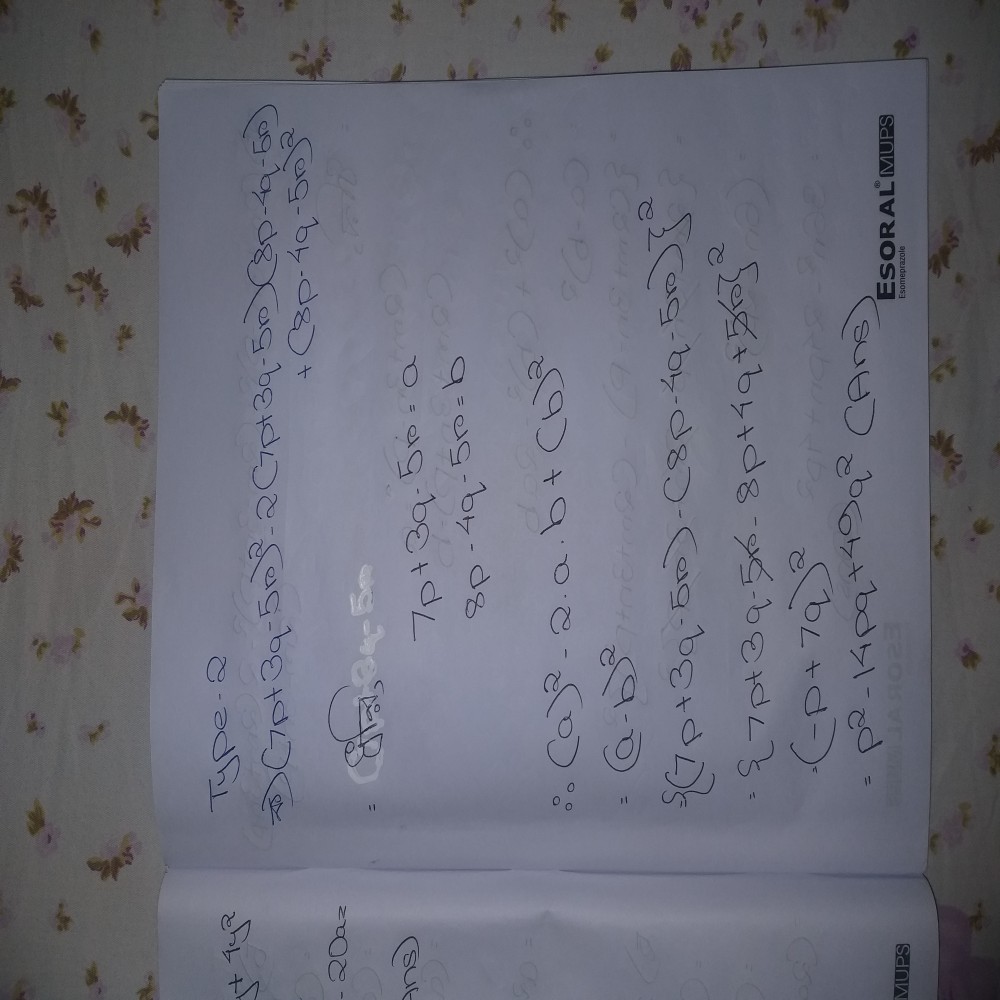 Type-2
ক) (7p+3q-5r)² - 2(7p+3q-5r)(8p-4q-5r)
+ (8p-4q-5r)²
= ধরি,
7p+3q-5r = a
8p-4q-5r = b
∴ (a)² - 2.a.b + (b)²
= (a-b)²
= {(7p+3q-5r) - (8p-4q-5r)}²
= {7p+3q-5r-8p+4q+5r}²
= (-p+7q)²
= p²-14pq+49q² (Ans)
ESORAL® MUPS
Esomeprazole
y+4y²
-20a=
Ans)
MUPS